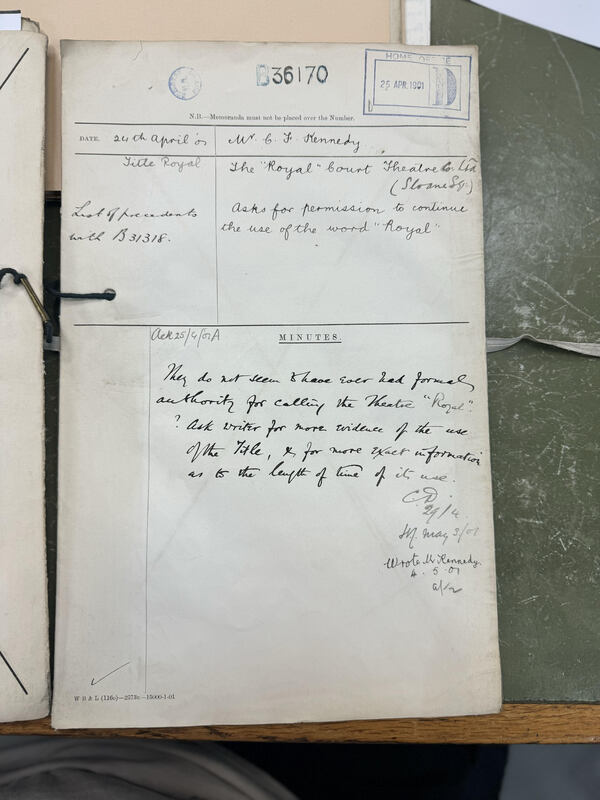 B36170
HOME OFFICE
25 APR. 1901
N.B.—Memoranda must not be placed over the Number.
DATE. 24th April '01
Mr. C. F. Kennedy
Title Royal
The "Royal" Court Theatre Co. Ltd
(Sloane Sq.)
List of precedents
with B31318.
Asks for permission to continue
the use of the word "Royal"
Ack 25/4/01 A
MINUTES.
They do not seem to have ever had formal
authority for calling the Theatre "Royal".
? Ask writer for more evidence of the use
of the Title, & for more exact information
as to the length of time of its use.
C.D.
29/4.
May 3/01
Wrote Mr Kennedy.
4.5.01
W B & L (116c)—2973b—15000-1-01